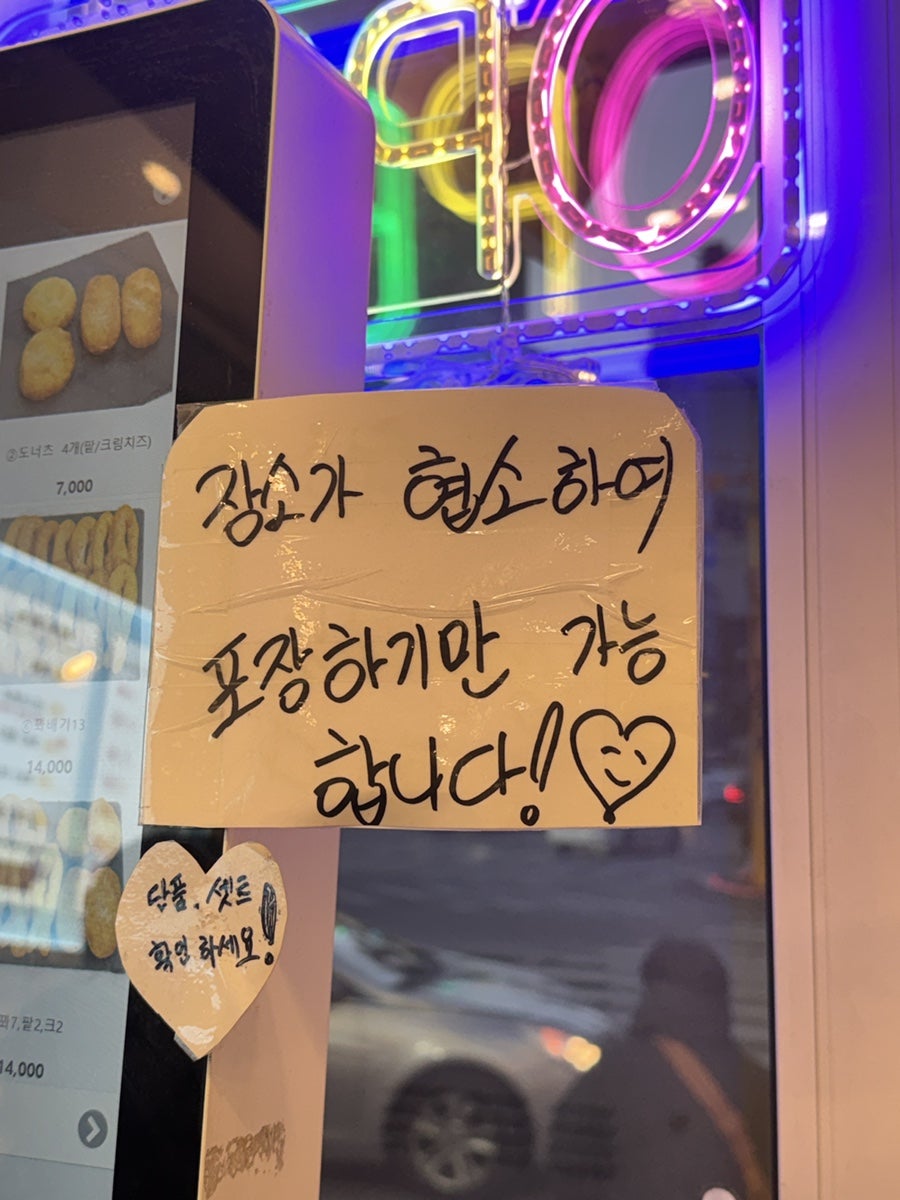 ②도너츠 4개(팥/크림치즈)
7,000
꽈배기13
14,000
꽈7,팥2,크2
14,000
장소가 협소하여
포장하기만 가능
합니다!
단품, 셋트
확인하세요!